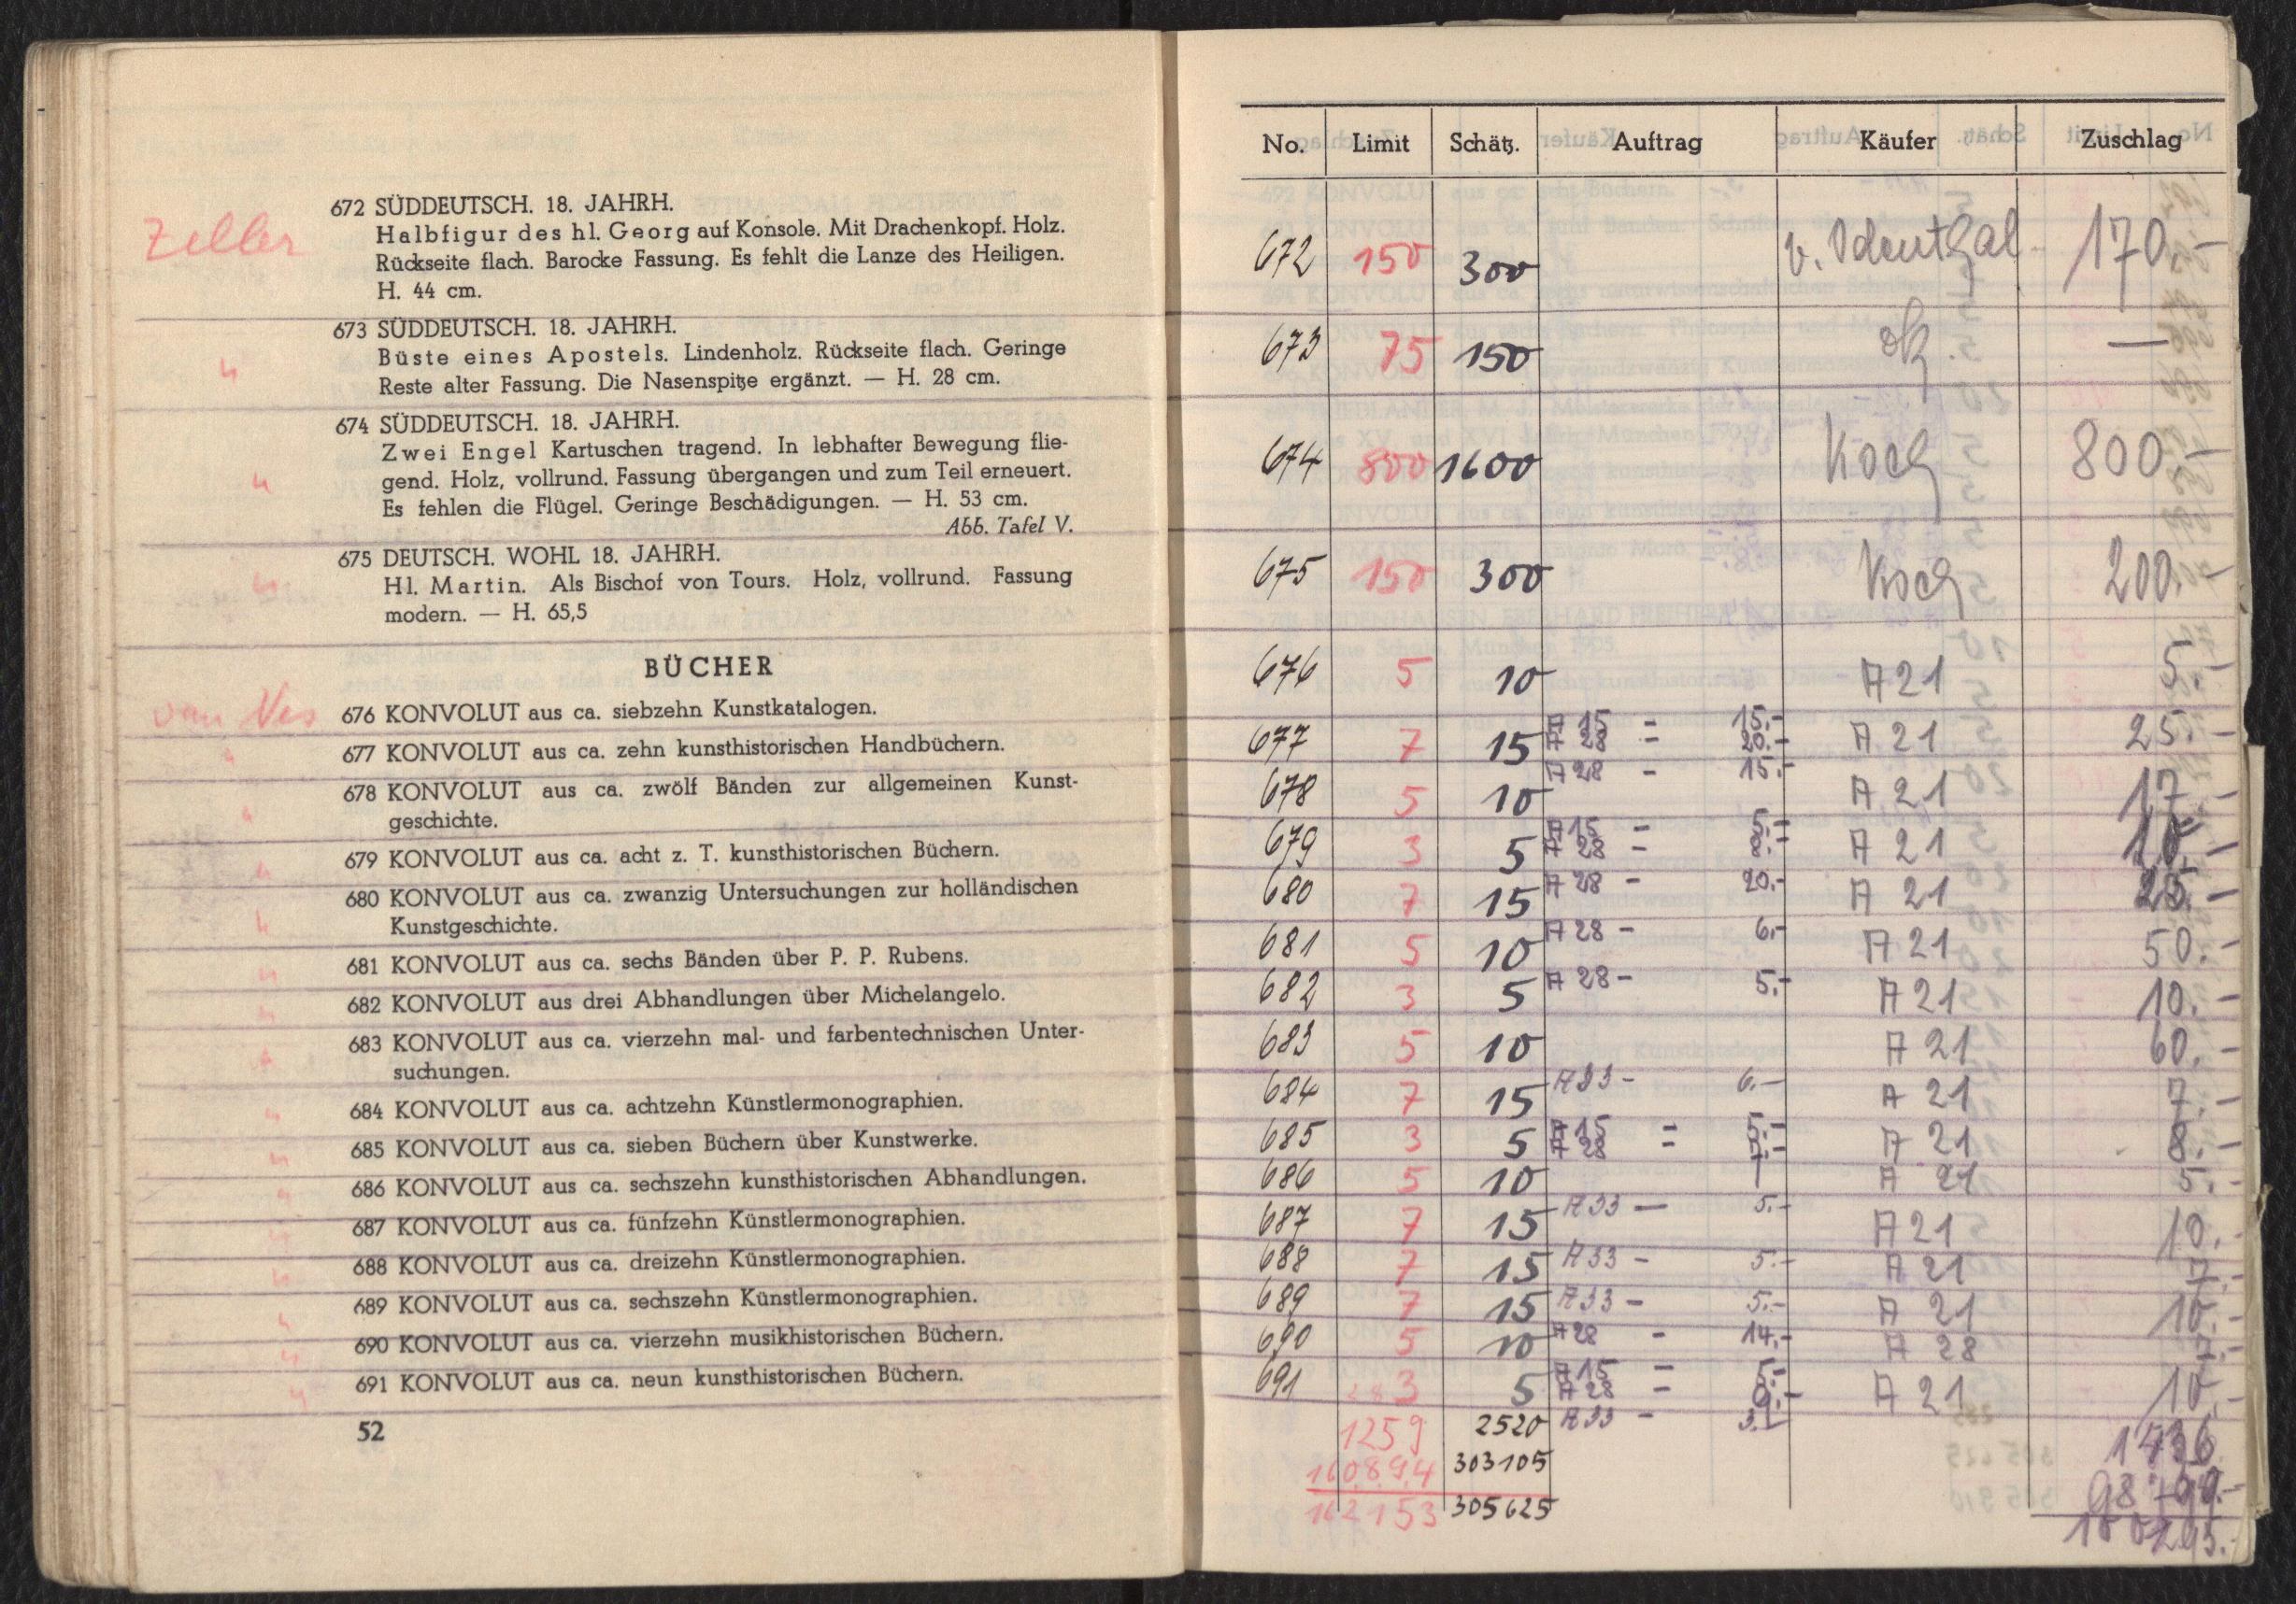 672 SÜDDEUTSCH. 18. JAHRH.
Zeller
Halbfigur des hl. Georg auf Konsole. Mit Drachenkopf. Holz.
Rückseite flach. Barocke Fassung. Es fehlt die Lanze des Heiligen.
H. 44 cm.
673 SÜDDEUTSCH. 18. JAHRH.
Büste eines Apostels. Lindenholz. Rückseite flach. Geringe
Reste alter Fassung. Die Nasenspitze ergänzt. — H. 28 cm.
674 SÜDDEUTSCH. 18. JAHRH.
Zwei Engel Kartuschen tragend. In lebhafter Bewegung flie-
gend. Holz, vollrund. Fassung übergangen und zum Teil erneuert.
Es fehlen die Flügel. Geringe Beschädigungen. — H. 53 cm.
Abb. Tafel V.
675 DEUTSCH. WOHL 18. JAHRH.
Hl. Martin. Als Bischof von Tours. Holz, vollrund. Fassung
modern. — H. 65,5
BÜCHER
van Nes 676 KONVOLUT aus ca. siebzehn Kunstkatalogen.
677 KONVOLUT aus ca. zehn kunsthistorischen Handbüchern.
678 KONVOLUT aus ca. zwölf Bänden zur allgemeinen Kunst-
geschichte.
679 KONVOLUT aus ca. acht z. T. kunsthistorischen Büchern.
680 KONVOLUT aus ca. zwanzig Untersuchungen zur holländischen
Kunstgeschichte.
681 KONVOLUT aus ca. sechs Bänden über P. P. Rubens.
682 KONVOLUT aus drei Abhandlungen über Michelangelo.
683 KONVOLUT aus ca. vierzehn mal- und farbentechnischen Unter-
suchungen.
684 KONVOLUT aus ca. achtzehn Künstlermonographien.
685 KONVOLUT aus ca. sieben Büchern über Kunstwerke.
686 KONVOLUT aus ca. sechszehn kunsthistorischen Abhandlungen.
687 KONVOLUT aus ca. fünfzehn Künstlermonographien.
688 KONVOLUT aus ca. dreizehn Künstlermonographien.
689 KONVOLUT aus ca. sechszehn Künstlermonographien.
690 KONVOLUT aus ca. vierzehn musikhistorischen Büchern.
691 KONVOLUT aus ca. neun kunsthistorischen Büchern.
52
No. Limit Schätz. Auftrag Käufer Zuschlag
672 150 300 v. Odenthal 170.-
673 75 150 —
674 800 1600 Koch 800.-
675 150 300 Koch 200.-
676 5 10 A 21 5.-
677 7 15 A 15 - 15.- A 21 25.-
A 28 - 20.-
678 5 10 A 28 - 15.- A 21 17.-
679 3 5 A 15 - 5.- A 21 10.-
A 28 - 8.-
680 7 15 A 28 - 20.- A 21 25.-
681 5 10 A 28 - 6.- A 21 50.-
682 3 5 A 28 - 5.- A 21 10.-
683 5 10 A 21 60.-
684 7 15 A 33 - 6.- A 21 7.-
685 3 5 A 15 - 5.- A 21 8.-
A 28 -
686 5 10 A 21 5.-
687 7 15 A 33 — 5.- A 21 10.-
688 7 15 A 33 - 5.- A 21 7.-
689 7 15 A 33 - 5.- A 21 10.-
690 5 10 A 28 - 14.- A 28 7.-
691 3 5 A 15 - 5.- A 21 10.-
A 28 -
1259 2520 A 33 - 1436
160894 303105
162153 305625